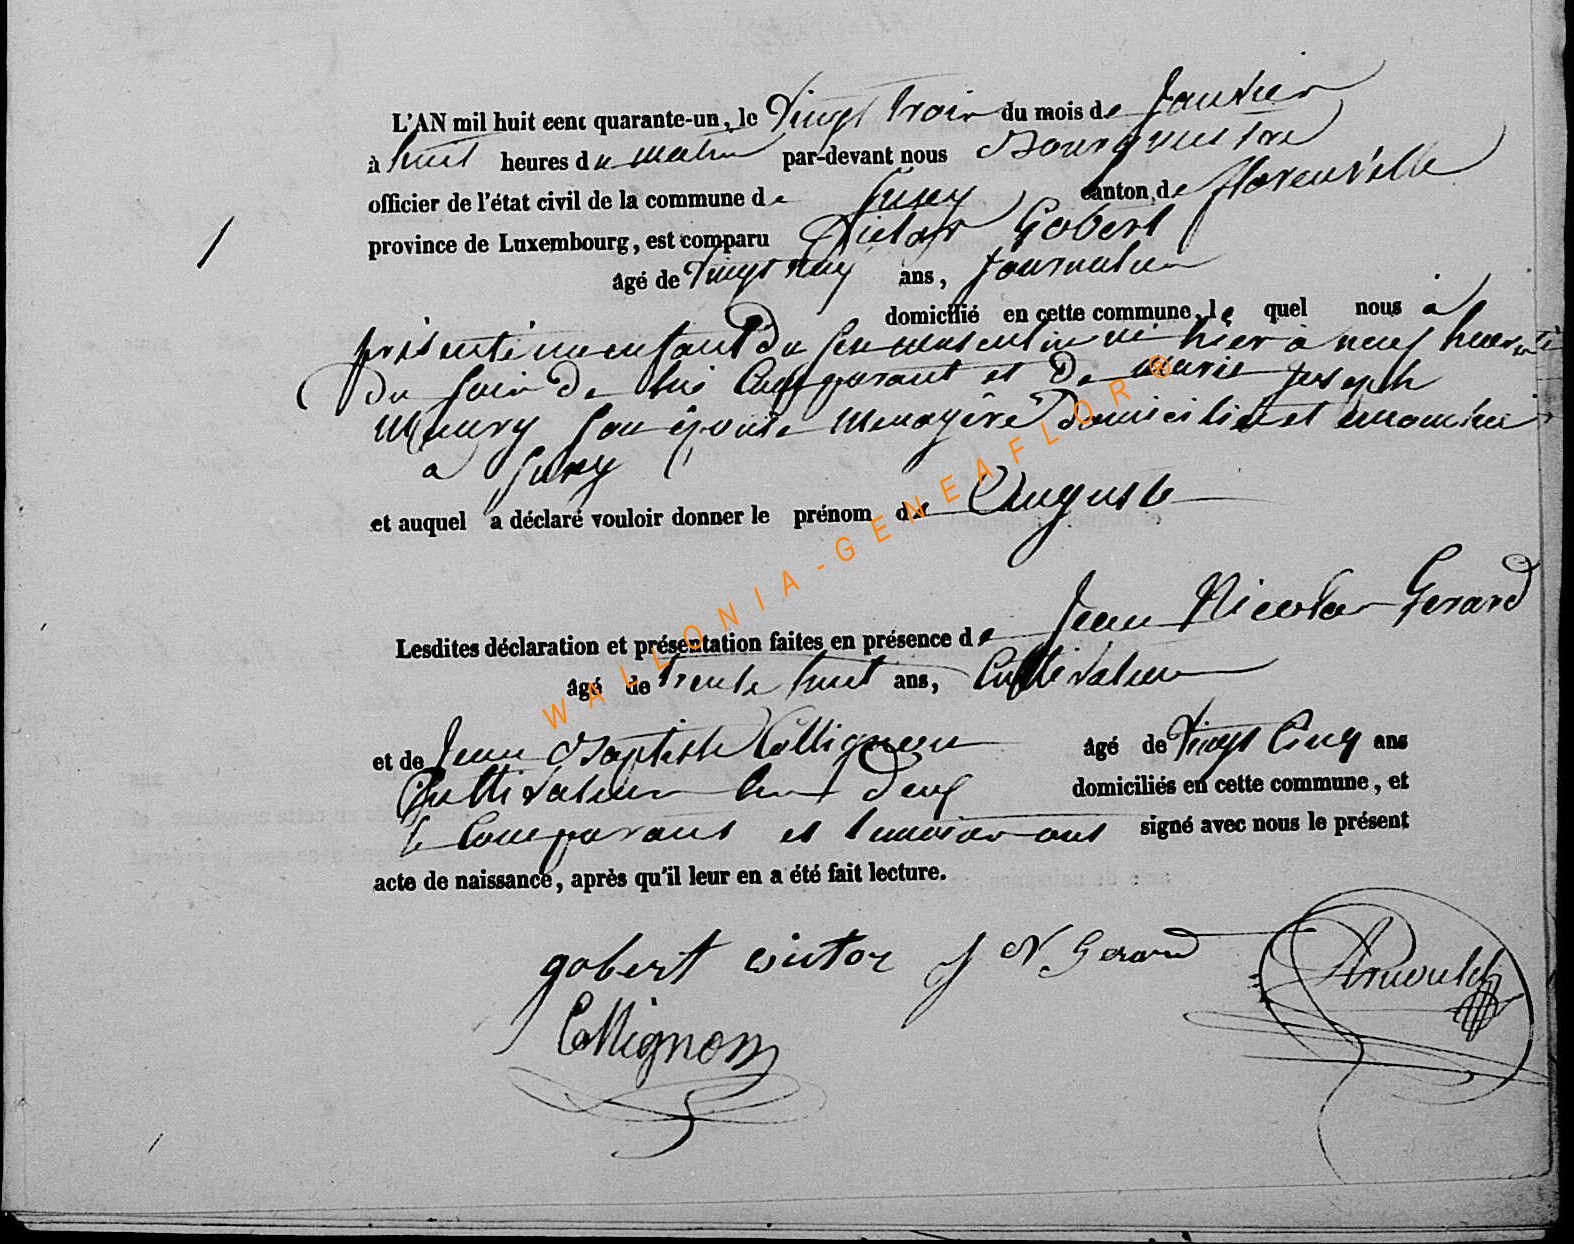 L'AN mil huit cent quarante-un, le Vingt trois du mois de Janvier
à huit heures du matin par-devant nous Bourguestre
officier de l'état civil de la commune de canton de florenville
province de Luxembourg, est comparu Victor Gobert
âgé de Vingt neuf ans, Journalier
domicilié en cette commune, le quel nous à
présenté un enfant Du Sexe masculin né hier à neuf heures
Du Soir De lui Comparant et De marie joseph
Son épouse Menagère Domiciliés et
à
et auquel a déclaré vouloir donner le prénom de Auguste
Lesdites déclaration et présentation faites en présence de Jean Nicolas Gerard
âgé de trente huit ans, Cultivateur
et de Jean Baptiste Collignon âgé de Vingt Cinq ans
Cultivateur deux domiciliés en cette commune, et
le Comparant et temoins ont signé avec nous le présent
acte de naissance, après qu'il leur en a été fait lecture.
gobert victor J N Gerard Arnould
Collignon
WALLONIA-GENEAFLOR®
1